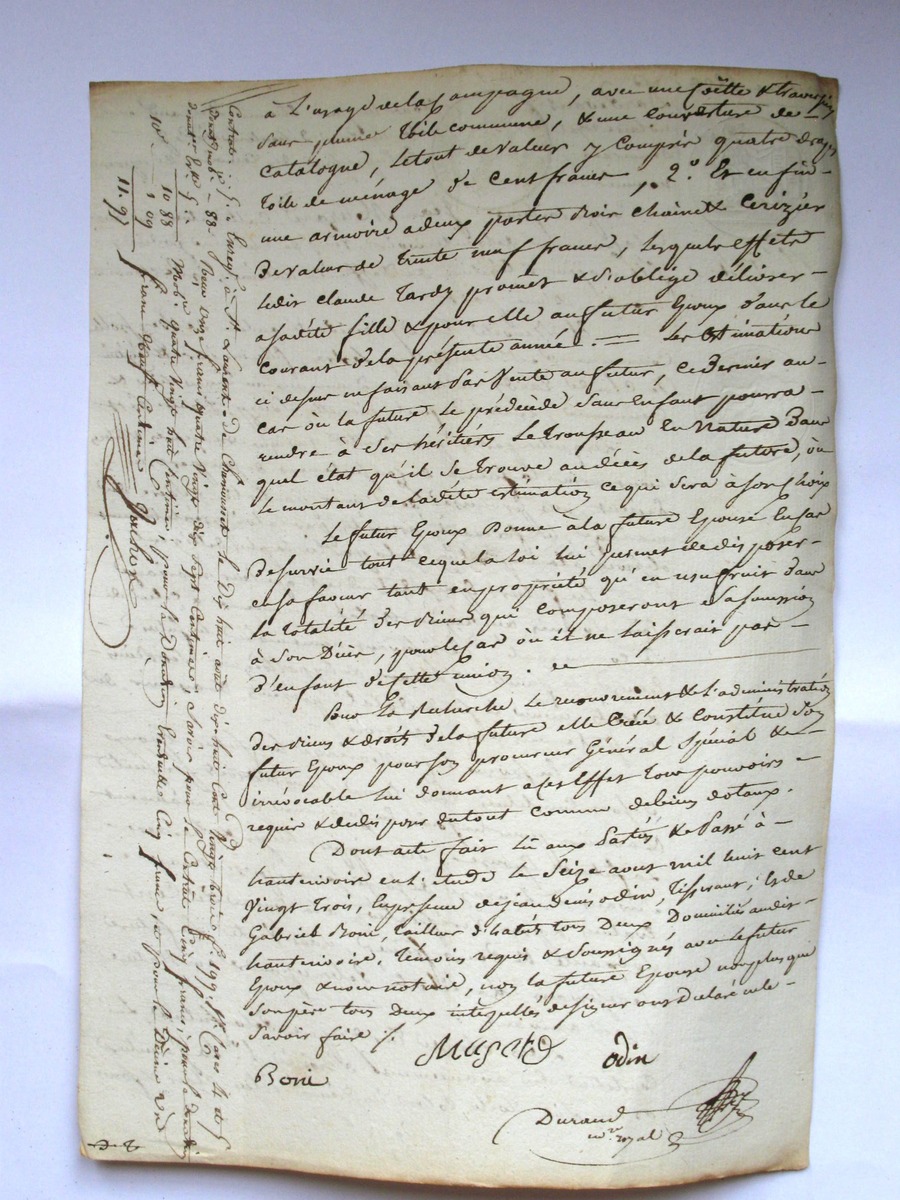 à L'usage de la Campagne, avec une Coëtte & traversin
toile commune, & une couverture de
catalogne, le tout de valeur y compris quatre draps
toile de ménage de cent francs, 2.º Et en fin
une armoire a deux portes Bois chaine & Cerizier
de valeur de trente neuf francs, lesquels effets
ledit Claude Tardy promet & s'oblige délivrer
a sadite fille & pour elle au futur Epoux dans le
courant de la présente année. = Les Estimations
ci dessus ne faisant pas vente au futur, ce dernier au
cas où la future le prédécède sans Enfant pourra
rendre à ses héritiers Le Trousseau En Nature dans
quel état qu'il se trouve au décès de la future, ou
le montant de ladite estimation ce qui sera à son choix
Le futur Epoux Donne à la future Epouse En cas
de survie tout ce que la loi lui permet de disposer
en sa faveur tant en propriété qu'en usufruit dans
la totalité des Biens qui composeront sa succession
à son Décès, pour le cas où il ne laisserait pas
d'enfant de cette union.
Pour La Recherche, le recouvrement & L'administration
des Biens & droits de la future elle Créé & Constitue son
futur Epoux pour son procureur Général spécial &
irrévocable lui donnant a cet Effet Tous pouvoirs
requis & de droit comme de biens dotaux.
Dont acte fait lu aux Parties & Passé à
hauterivoire en l'étude le Seize aout mil huit cent
Vingt Trois, En présence de jean denis odin, Tisserant, & de
Gabriel Boni, tailleur d'habits tous Deux Domiciliés audit
hauterivoire, Témoins requis & Soussignés avec le futur
Epoux & nous notaire, non la future Epouse non plus que
son père tous Deux interpellés de signer ont déclaré ne le
Savoir faire /.
Boni
Odin
Durand
n.re royal
Enreg.é à S.t Laurent De Chamousset le Dix huit août dix huit Cent Vingt trois f.º 199
Reçu Onze francs quatre Vingt dix Sept Centimes, Savoir pour le Contrat Cinq francs, pour le
quatre Vingt huit Centimes, pour la Donation Cinq francs, et pour le Décime Un
franc Neuf Centimes
88
10 88
1 09
11. 97